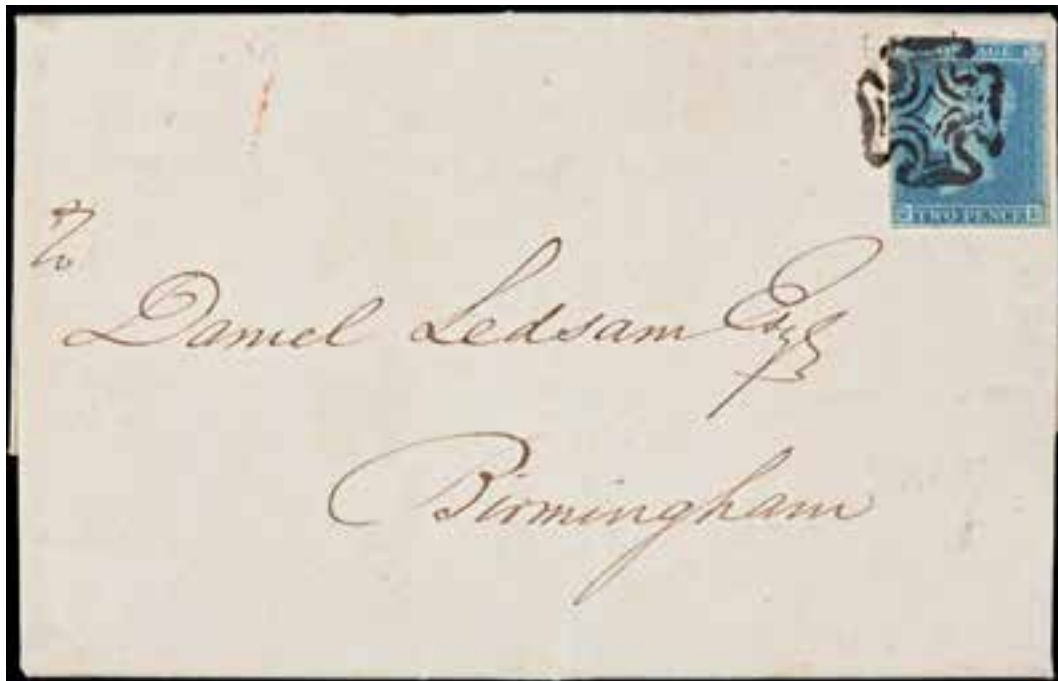 AGE
TWO PENCE
To
Daniel Ledsam Esqr
Birmingham